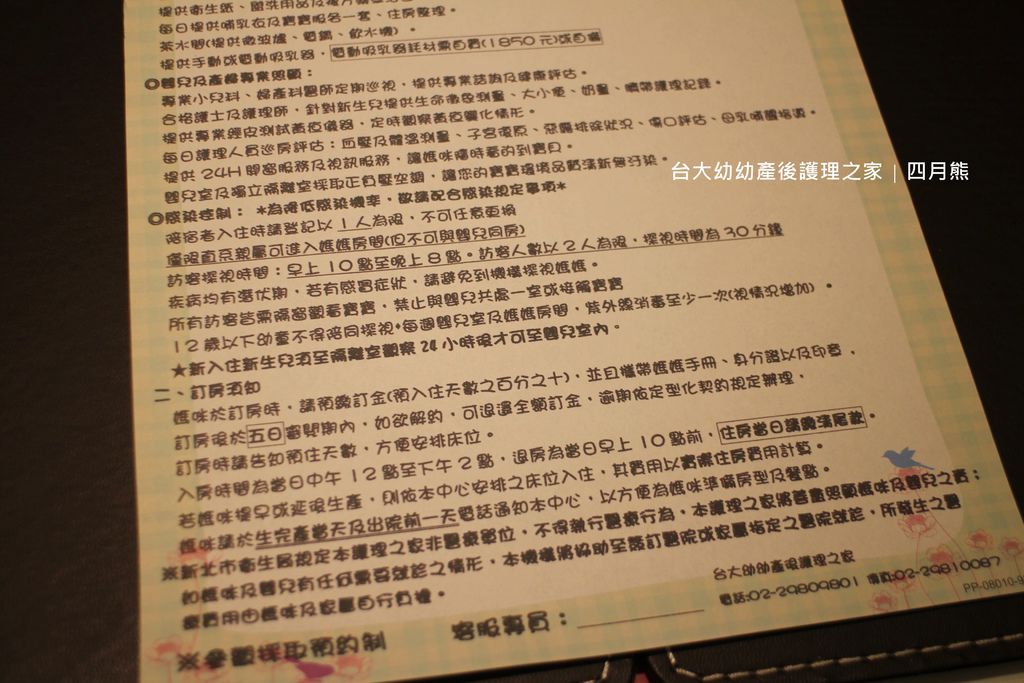 提供衛生紙、盥洗用品及
每日提供哺乳衣及寶寶服各一套、住房整理。
茶水間(提供微波爐、電鍋、飲水機)。
提供手動或電動吸乳器,電動吸乳器耗材需自費(1850元)或自備
◎嬰兒及產婦專業照顧:
專業小兒科、婦產科醫師定期巡視,提供專業諮詢及健康評估。
合格護士及護理師,針對新生兒提供生命徵象測量、大小便、奶量、臍帶護理記錄。
提供專業經皮測試黃疸儀器,定時觀察黃疸變化情形。
每日護理人員巡房評估:血壓及體溫測量、子宮復原、惡露排除狀況、傷口評估、母乳哺餵指導。
提供24H開窗服務及視訊服務,讓媽咪隨時看的到寶貝。
嬰兒室及獨立隔離室採取正負壓空調,讓您的寶寶環境品質清新無汙染。
◎感染控制: *為降低感染機率,敬請配合感染規定事項*
陪宿者入住時請登記以1人為限,不可任意更換
僅限直系親屬可進入媽媽房間(但不可與嬰兒同房)
訪客探視時間:早上10點至晚上8點。訪客人數以2人為限,探視時間為30分鐘
疾病均有潛伏期,若有感冒症狀,請避免到機構探視媽媽。
所有訪客皆需隔窗觀看寶寶,禁止與嬰兒共處一室或接觸寶寶
12歲以下幼童不得陪同探視*每週嬰兒室及媽媽房間,紫外線消毒至少一次(視情況增加)。
★新入住新生兒須至隔離室觀察24小時後才可至嬰兒室內。
二、訂房須知
媽咪於訂房時,請預繳訂金(預入住天數之百分之十),並且攜帶媽媽手冊、身分證以及印章,
訂房後於五日審閱期內,如欲解約,可退還全額訂金,逾期依定型化契約規定辦理,
訂房時請告知預住天數,方便安排床位。
入房時間為當日中午12點至下午2點,退房為當日早上10點前,住房當日請繳清尾款。
若媽咪提早或延後生產,則依本中心安排之床位入住,其費用以實際住房費用計算。
媽咪請於生完產當天及出院前一天電話通知本中心,以方便為媽咪準備房型及餐點。
※新北市衛生局規定本護理之家非醫療部位,不得執行醫療行為,本護理之家將善盡照顧媽咪及嬰兒之責;
如媽咪及嬰兒有任何需要就診之情形,本機構將協助至簽訂醫院或家屬指定之醫院就診,所發生之醫
療費用由媽咪及家屬自行負擔。
台大幼幼產後護理之家
電話:02-29809801 傳真:02-29810087
PP-08010-
※參觀採取預約制 客服專員:
台大幼幼產後護理之家 | 四月熊